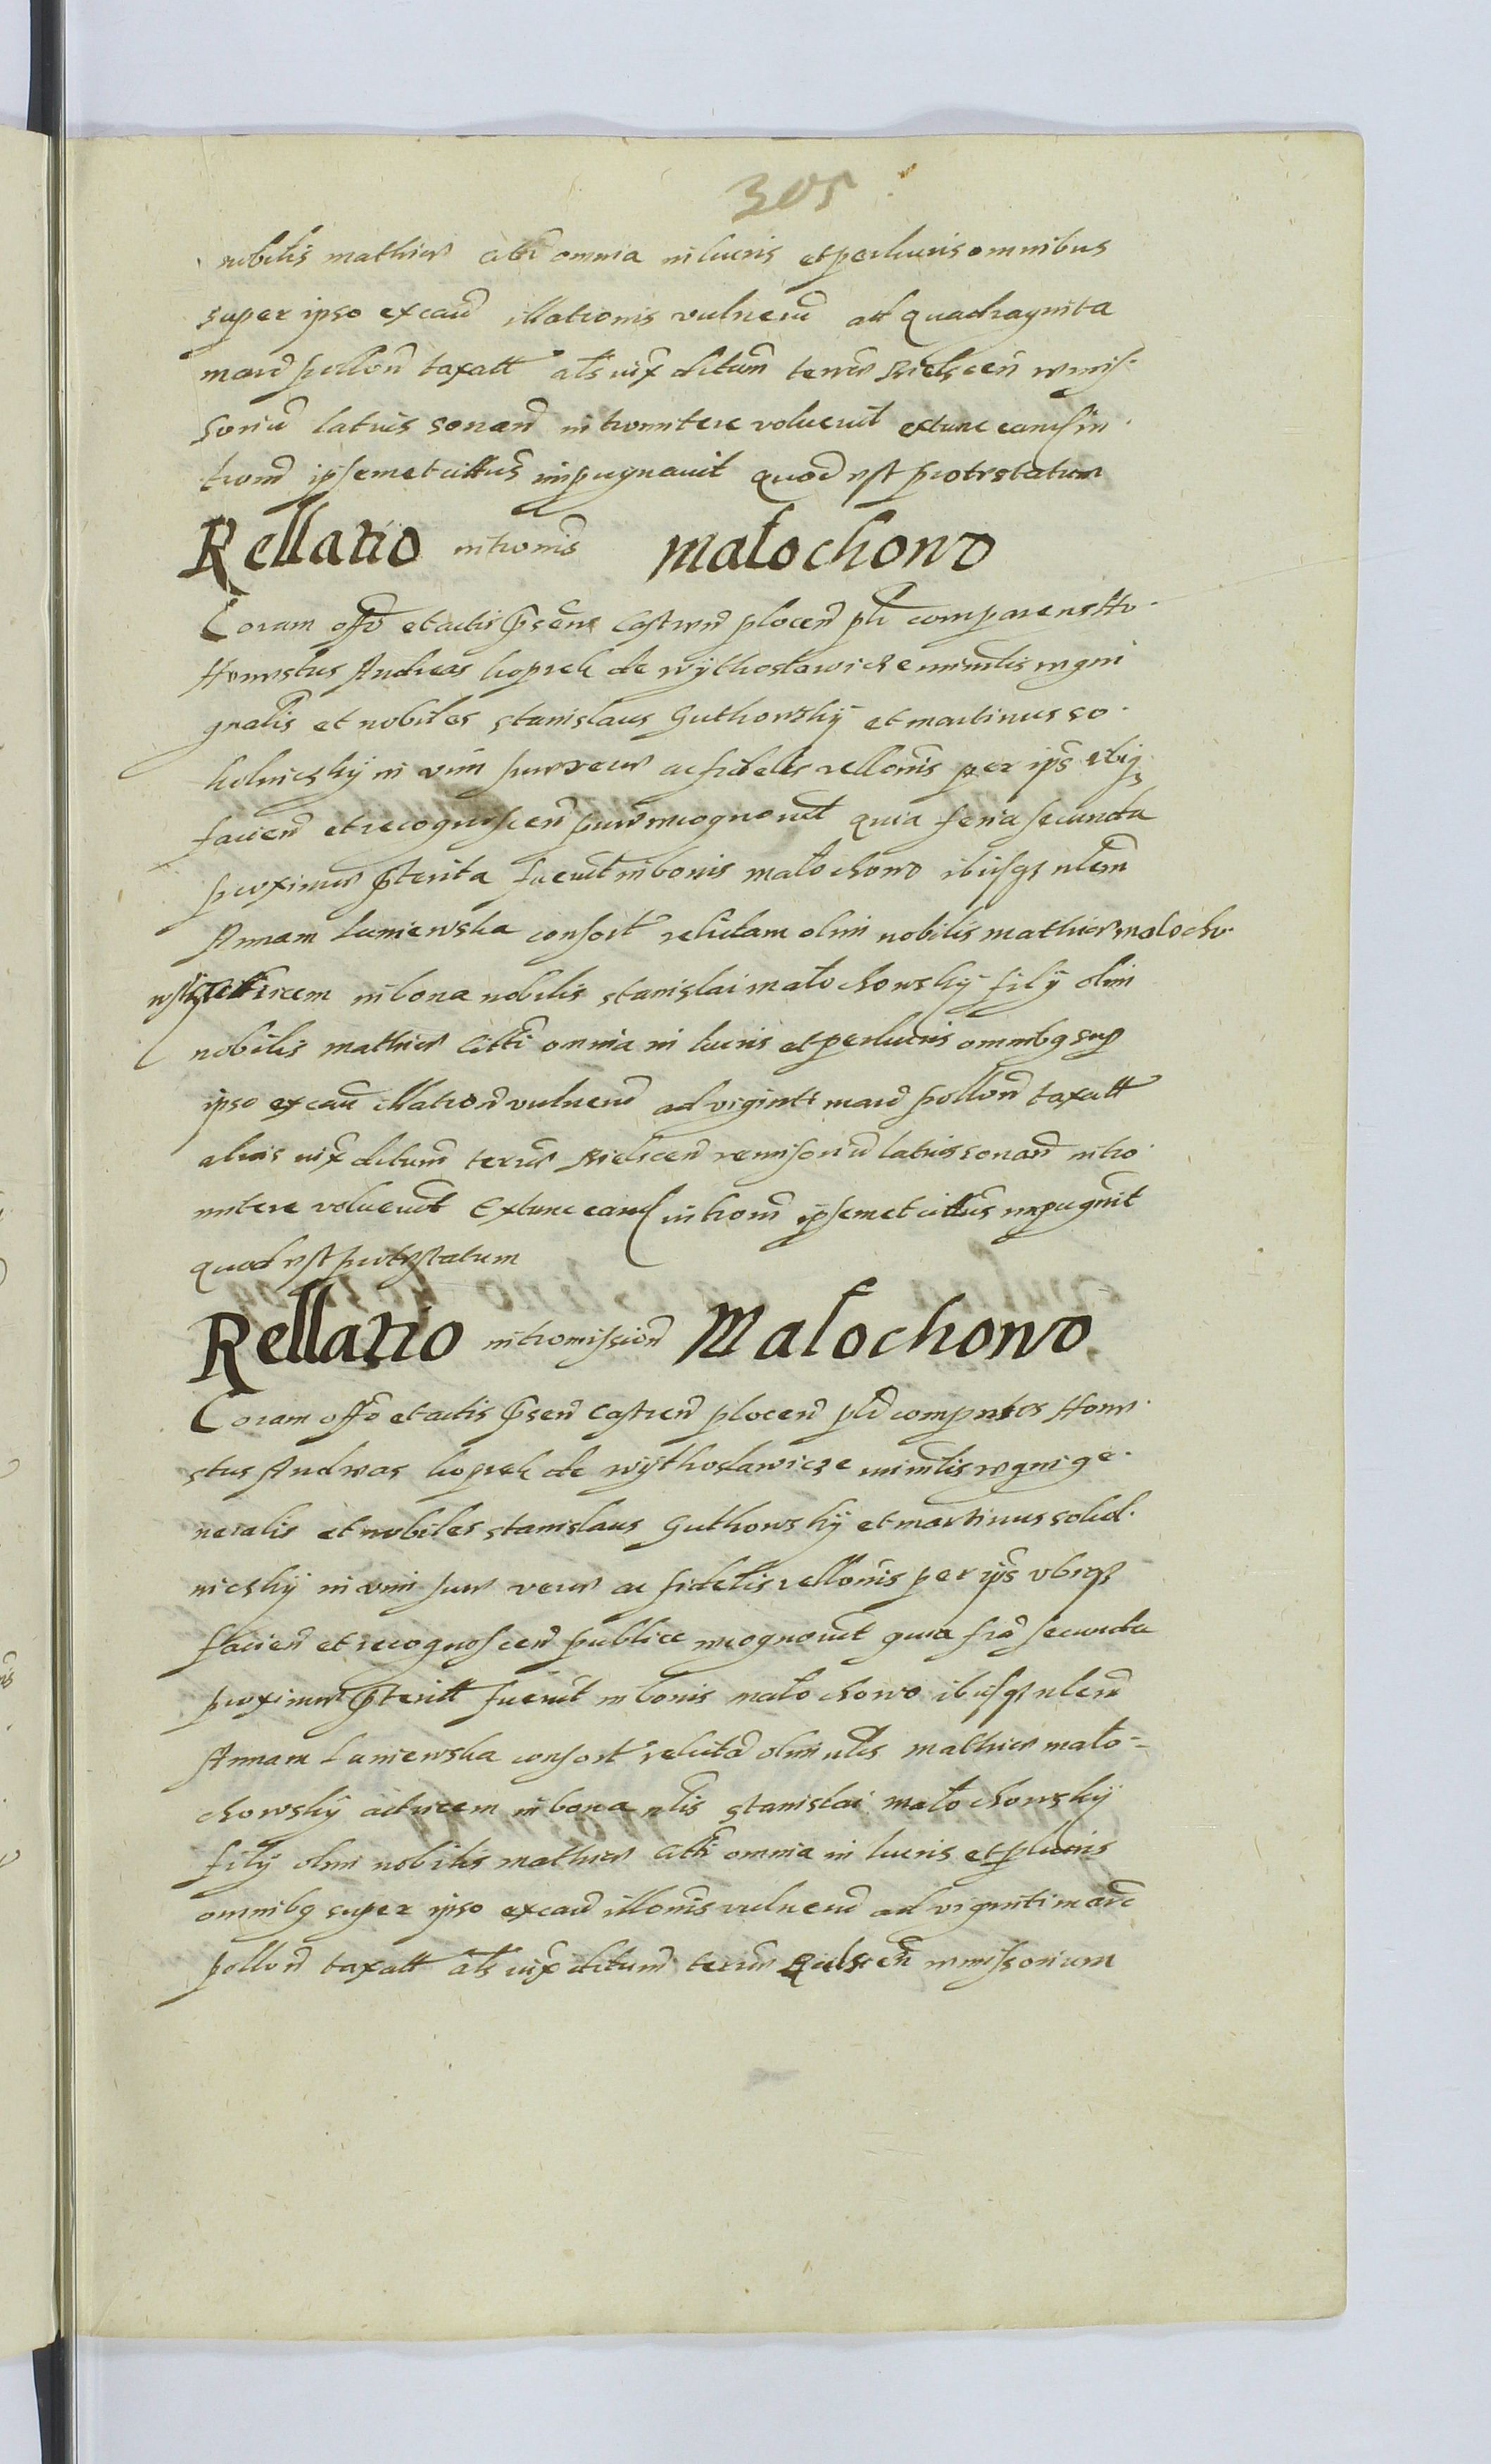 305
nobilis mathiae citti omnia in lucris et perlucris omnibus
super ipso ex cau͠ illationis vulneru͠ ad quadraginta
marc͠ pollon͠ taxatt als iux ditum͠ terrae Bielscen͠ remis-
soriu͠ latius sonan͠ intromittere voluerut extunc eand in-
trom͠ ipsemet cittus͠ impugnavit quod est protestatum
Rellatio intromis͠ małochowo
Coram offo et actis p͠sen͠ Castren͠ plocen͠ pl͠r comparens Ho-
Honestus Andreas kopeck de wythosławicze mi͠nlis regni
gnalis et nobiles stanislaus Guthowskÿ et martinus so-
kolnickÿ in vim suae verae ac fidelis rello͠nis per ip͠s ubiq;
facien͠ et recognoscen͠ suae recognovit quia feria secunda
proxime p͠terita fuerut in bonis małochowo ibiq; nlem͠
Annam Łaniewska consort͠ relictam olim nobilis mathiae małocho-
wskÿ actricem in bona nobilis stanislai małochowskÿ filÿ olim
nobilis mathiae citti omnia in lucris et perlucris omnibq sup
ipso ex cau͠ illation͠ vulneru͠ ad viginti marc͠ pollon͠ taxatt
alias iux ditum͠ terrae Bielscen͠ remisoriu͠ latius sonan͠ intro-
mittere voluerut Extunc eand introm͠ ipsemet cittus͠ impugnit
quod est protestatum
Rellatio intromission͠ Małochowo
Coram offo et actis p͠sen͠ Castren͠ plocen͠ pl͠r compnte͠s Hone-
stus Andreas kopeck de wÿthosławicze mi͠nlis regni ge-
neralis et nobiles stanislaus Guthowskÿ et martinus sokol-
nickÿ in vim suae verae ac fidelis rello͠nis per ip͠s ubiq;
facien͠ et recognoscen͠ publice recognovut quia fra͠ secunda
proxime p͠teritt fuerut in bonis małochowo ibiq; nlem͠
Annam Łaniewska consort͠ relicta͠ olim nlis mathiae mało-
chowskÿ actricem in bona nlis stanislai małochowskÿ
filÿ olim nobilis mathiae citti omnia in lucris et plucris
omnibq super ipso ex cau͠ illonis͠ vulneru͠ ad viginti marc͠
pollon͠ taxatt als iux ditum͠ terrae Bielscen͠ remissorium